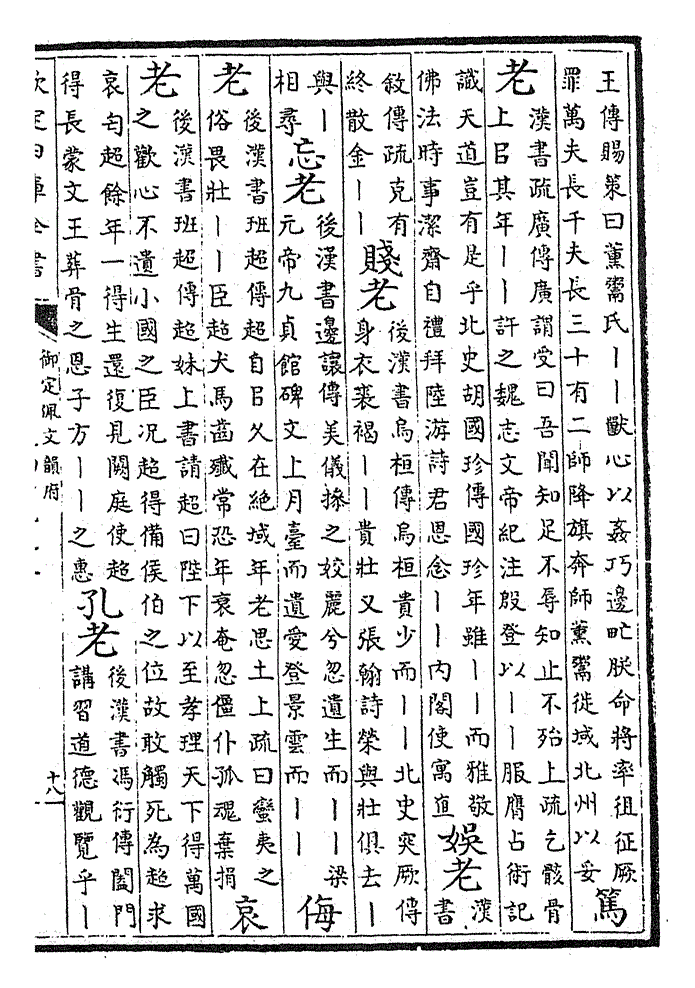 王傳賜策曰薰鬻氏丨丨獸心以姦巧邊甿朕命將率徂征厥
罪萬夫長千夫長三十有二師降旗奔師薰鬻徙域北州以妥
篤
老
漢書疏廣傳廣謂受曰吾聞知足不辱知止不殆上疏乞骸骨
上㠯其年丨丨許之魏志文帝紀注殷登以丨丨服膺占術記
識天道豈有是乎北史胡國珍傳國珍年雖丨丨而雅敬
佛法時事潔齋自禮拜陸游詩君恩念丨丨內閣使寓直
娛老
漢
書
敘傳疏克有
終散金丨丨
賤老
後漢書烏桓傳烏桓貴少而丨丨北史突厥傳
身衣裘褐丨丨貴壯又張翰詩榮與壯俱去丨
與丨
相尋
忘老
後漢書邊讓傳美儀操之姣麗兮忽遺生而丨丨梁
元帝九貞館碑文上月臺而遺愛登景雲而丨丨
侮
老
後漢書班超傳超自㠯久在絕域年老思土上疏曰蠻夷之
俗畏壯丨丨臣超犬馬齒殲常恐年衰奄忽僵仆孤魂棄捐
哀
老
後漢書班超傳超妹上書請超曰陛下以至孝理天下得萬國
之歡心不遺小國之臣況超得備侯伯之位故敢觸死為超求
哀匄超餘年一得生還復見闕庭使超
得長蒙文王葬骨之恩子方丨丨之惠
孔老
後漢書馮衍傳闔門
講習道德觀覽乎丨
欽定四庫全書
御定佩文韻府
十八